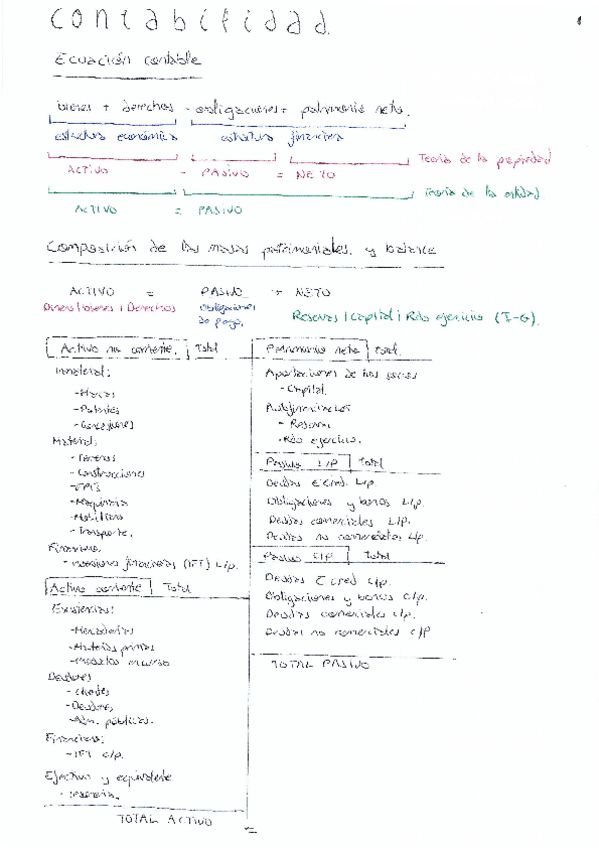 contabilidad.
Ecuación contable
bienes + derechos - obligaciones + patrimonio neto.
estructura económica estructura financiera
Teoría de la propiedad
ACTIVO - PASIVO = NETO
Teoría de la entidad
ACTIVO = PASIVO
Composición de las masas patrimoniales. y balance
ACTIVO = PASIVO + NETO
Dinero / bienes / Derechos Obligaciones
de pago.
Reservas / Capital / Rdo ejercicio (I-G).
Activo no corriente. Total
Inmaterial:
- Marcas
- Patentes
- Concesiones
Material:
- Terrenos
- Construcciones
- EPI's
- Maquinaria
- Mobiliario
- Transporte.
Financiero
- inversiones financieras (IFT) L/p.
Activo corriente Total
Existencias:
- Mercaderías
- Materias primas
- Productos en curso
Deudores
- clientes
- Deudores
- Adm. públicas.
Financiero:
- IFT c/p.
Efectivo y equivalente
- tesorería.
TOTAL ACTIVO
Patrimonio neto Total.
Aportaciones de los socios
- Capital.
Autofinanciación
- Reservas
- Rdo ejercicio.
Pasivo L/P Total
Deudas E.Cred. L/p.
Obligaciones y bonos L/p.
Deudas comerciales L/p.
Deudas no comerciales L/p.
Pasivo C/P Total
Deudas E cred c/p.
Obligaciones y bonos c/p.
Deudas comerciales c/p.
Deudas no comerciales c/P
TOTAL PASIVO